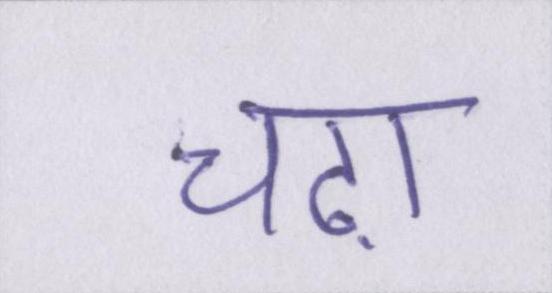 चढ़ा